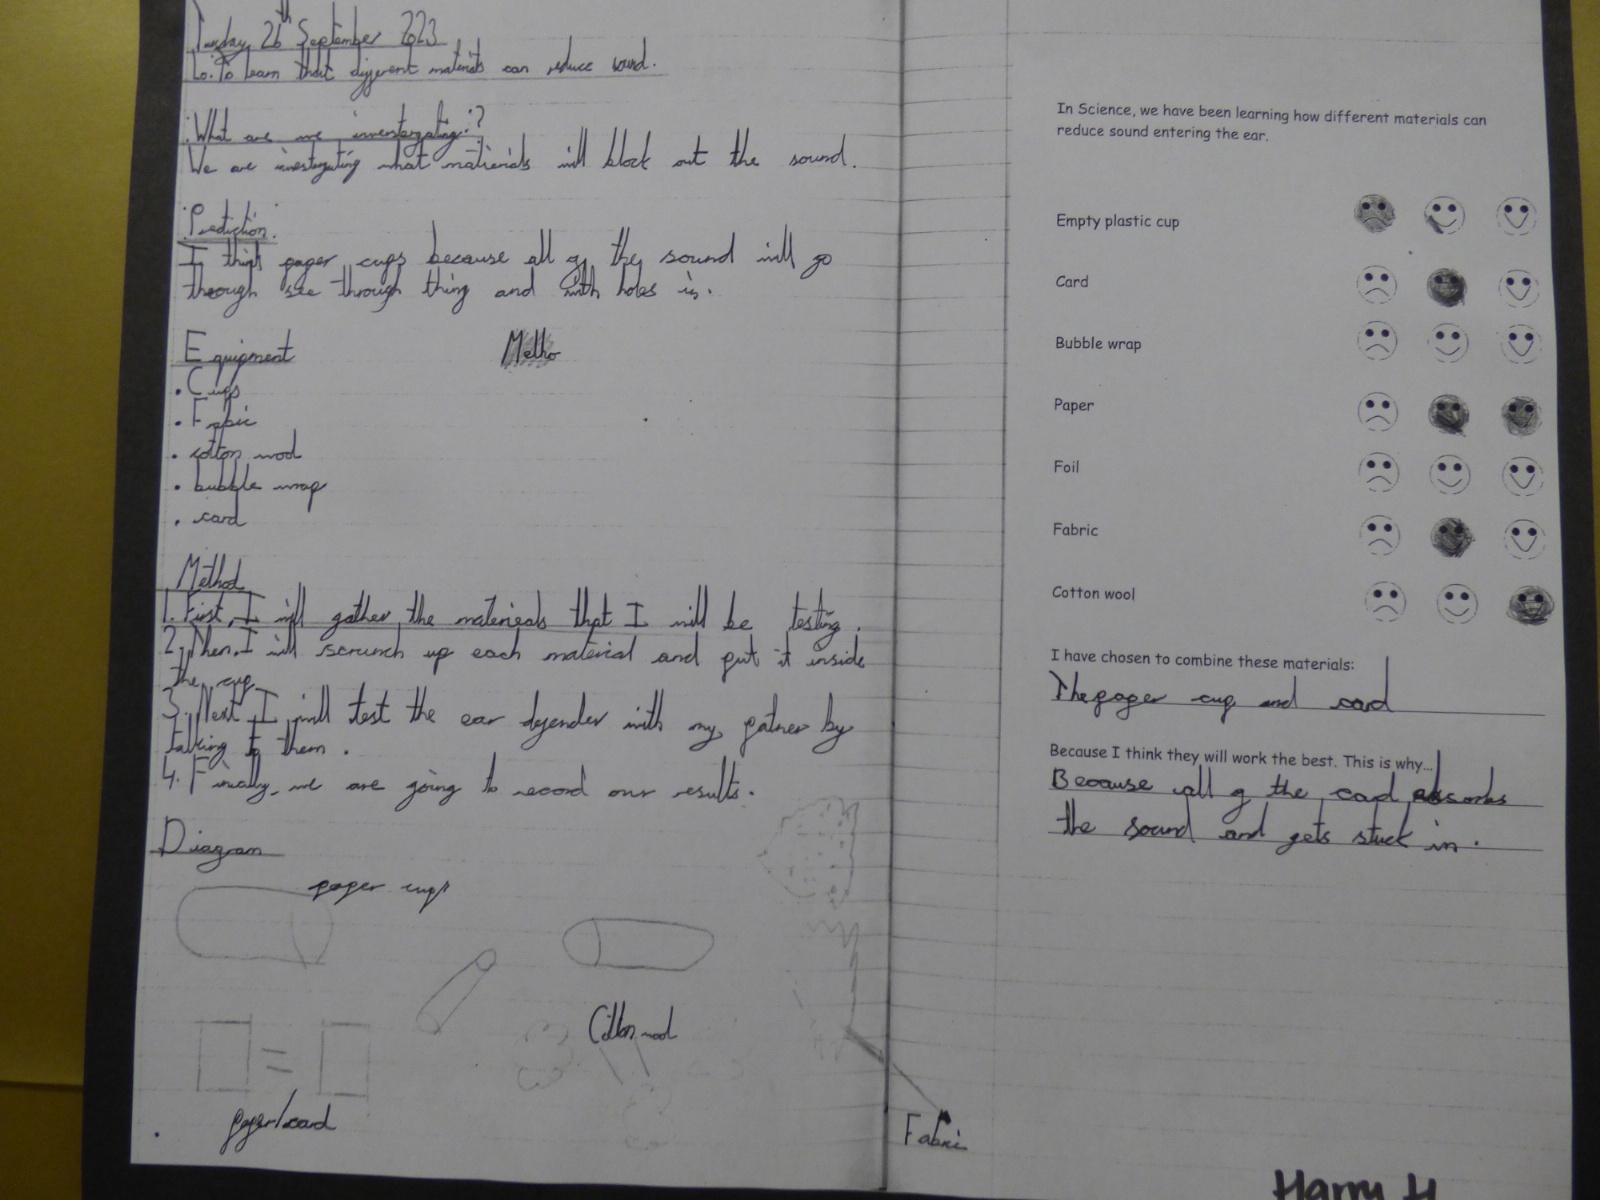 Tuesday 26th September 2023
Lo: To learn that different materials can reduce sound.
What are we investergating?
We are investergating what materials will block out the sound.
Prediction
I think paper cups because all of the sound will go
through see through thing and with holes in.
Equipment
Metho
. Cups
. Fabic
. cotton wool
. bubble wrap
. card
Method
1. First, I will gather the materieals that I will be testing.
2. Then, I will scrunch up each material and put it inside
the cup
3. Next I will test the ear defender with my patner by
talking to them.
4. Finally, we are going to record our results.
Diagram
paper cups
Cotton wool
paper/card
Fabric
In Science, we have been learning how different materials can
reduce sound entering the ear.
Empty plastic cup
Card
Bubble wrap
Paper
Foil
Fabric
Cotton wool
I have chosen to combine these materials:
The paper cup and card
Because I think they will work the best. This is why...
Because all of the card absorbs
the sound and gets stuck in.
Harry H